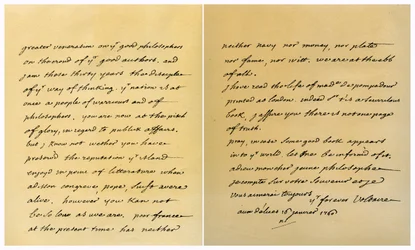 greater veneration on yr good philosophers
on the crowd of yr good authors, and
j am these thirty years the disciple
of yr way of thinking. yr nation is at
once a people of warriours and of
philosophers. you are now at the pitch
of glory, in regard to publick affairs.
but j know not wether you have
preserved the reputation yr island
enjoy'd in point of litterature when
adison congreve pope, swift were
alive. however you kan not
be so low as we are. poor france
at the present time has neither
neither navy nor money, nor plate
nor fame, nor witt. we are at the ebb
of all.
j have read the life of madme de pompadour
printed at london. indeed sr t'is a scurrilous
book. j assure you there is not one page
of truth.
pray, in case some good book appears
in to yr world let me be inform'd of it.
adieu mon cher jeune philosophe
je compte sur votre souvenir et je
vous aimerai toujours.
yr forever Voltaire
aux délices 16 janvier 1760